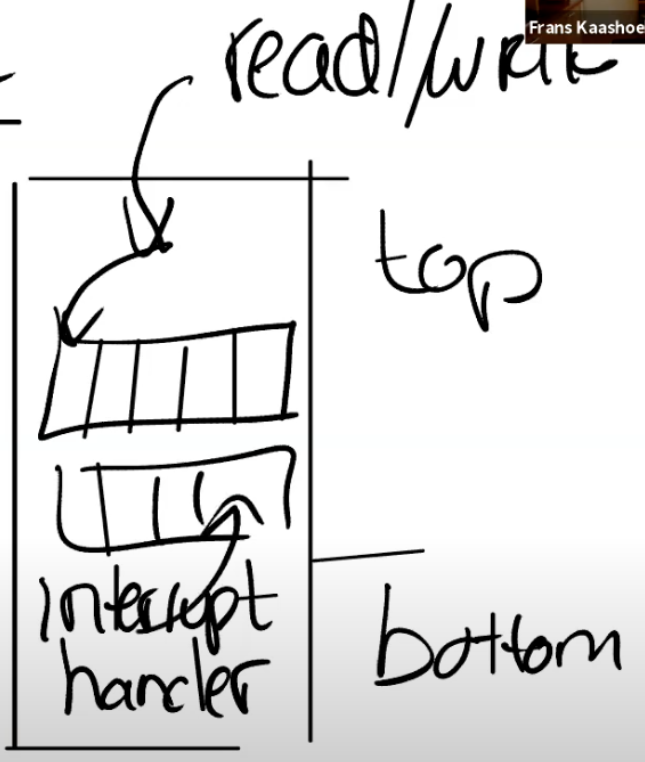 Frans Kaashoe
read/write
top
interrupt
handler
bottom